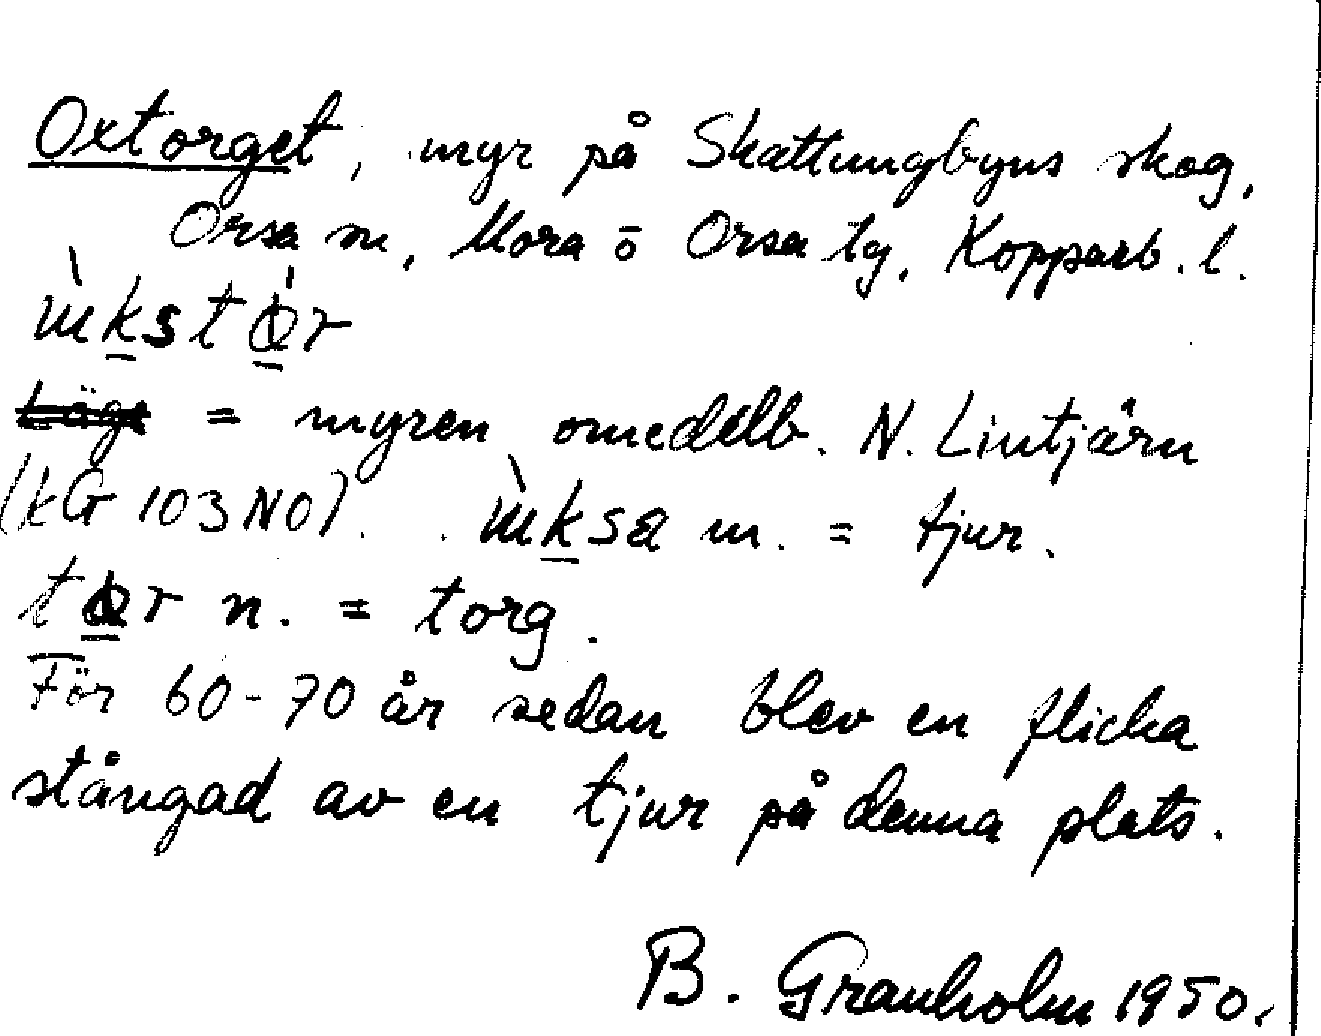 Oxtorget, myr på Skattungbyns skog,
Orsa sn, Mora o Orsa tg, Kopparb. l.
= myren omedelb. N. Lintjärn
(kG 103 NO). m. = tjur.
n. = torg.
För 60-70 år sedan blev en flicka
stångad av en tjur på denna plats.
B. Granholm 1950.